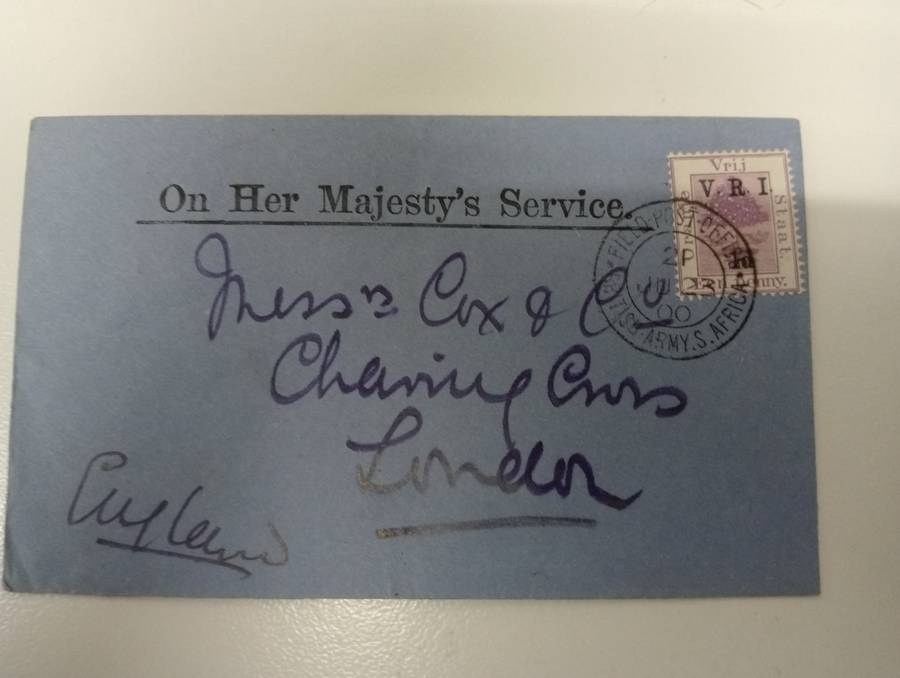 On Her Majesty's Service.
Vrij
V. R. I.
Staat.
1d
FIELD POST OFFICE
2P
00
BRITISH ARMY. S. AFRICA
Messrs Cox & Co
Charing Cross
London
England